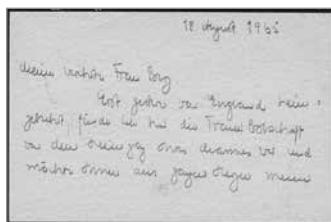 18 August 1965
Meine verehrte Frau Borg
Erst gestern von England heim-
gekehrt finde ich hier die Trauer Botschaft
von dem Heimgang Ihres Mannes vor und
möchte Ihnen aus ganzem Herzen meine